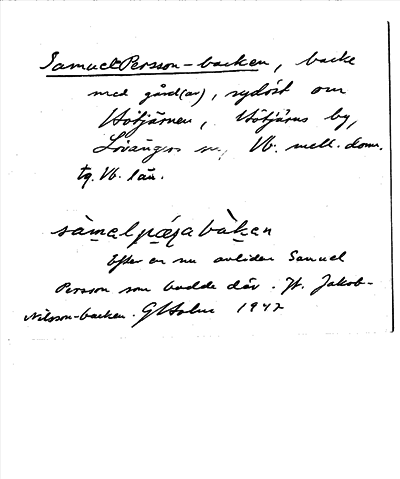 Samuel Persson-backen, backe
med gård(ar), sydöst om
Hötjärnen, Hötjärns by,
Lövångers sn, Vb. mell. doms.
tg. Vb. län.
sàmǝlpæʂabàkǝn
Efter en nu avliden Samuel
Persson som bodde där. Jf. Jakob-
Nilsson-backen. G Holm 1947